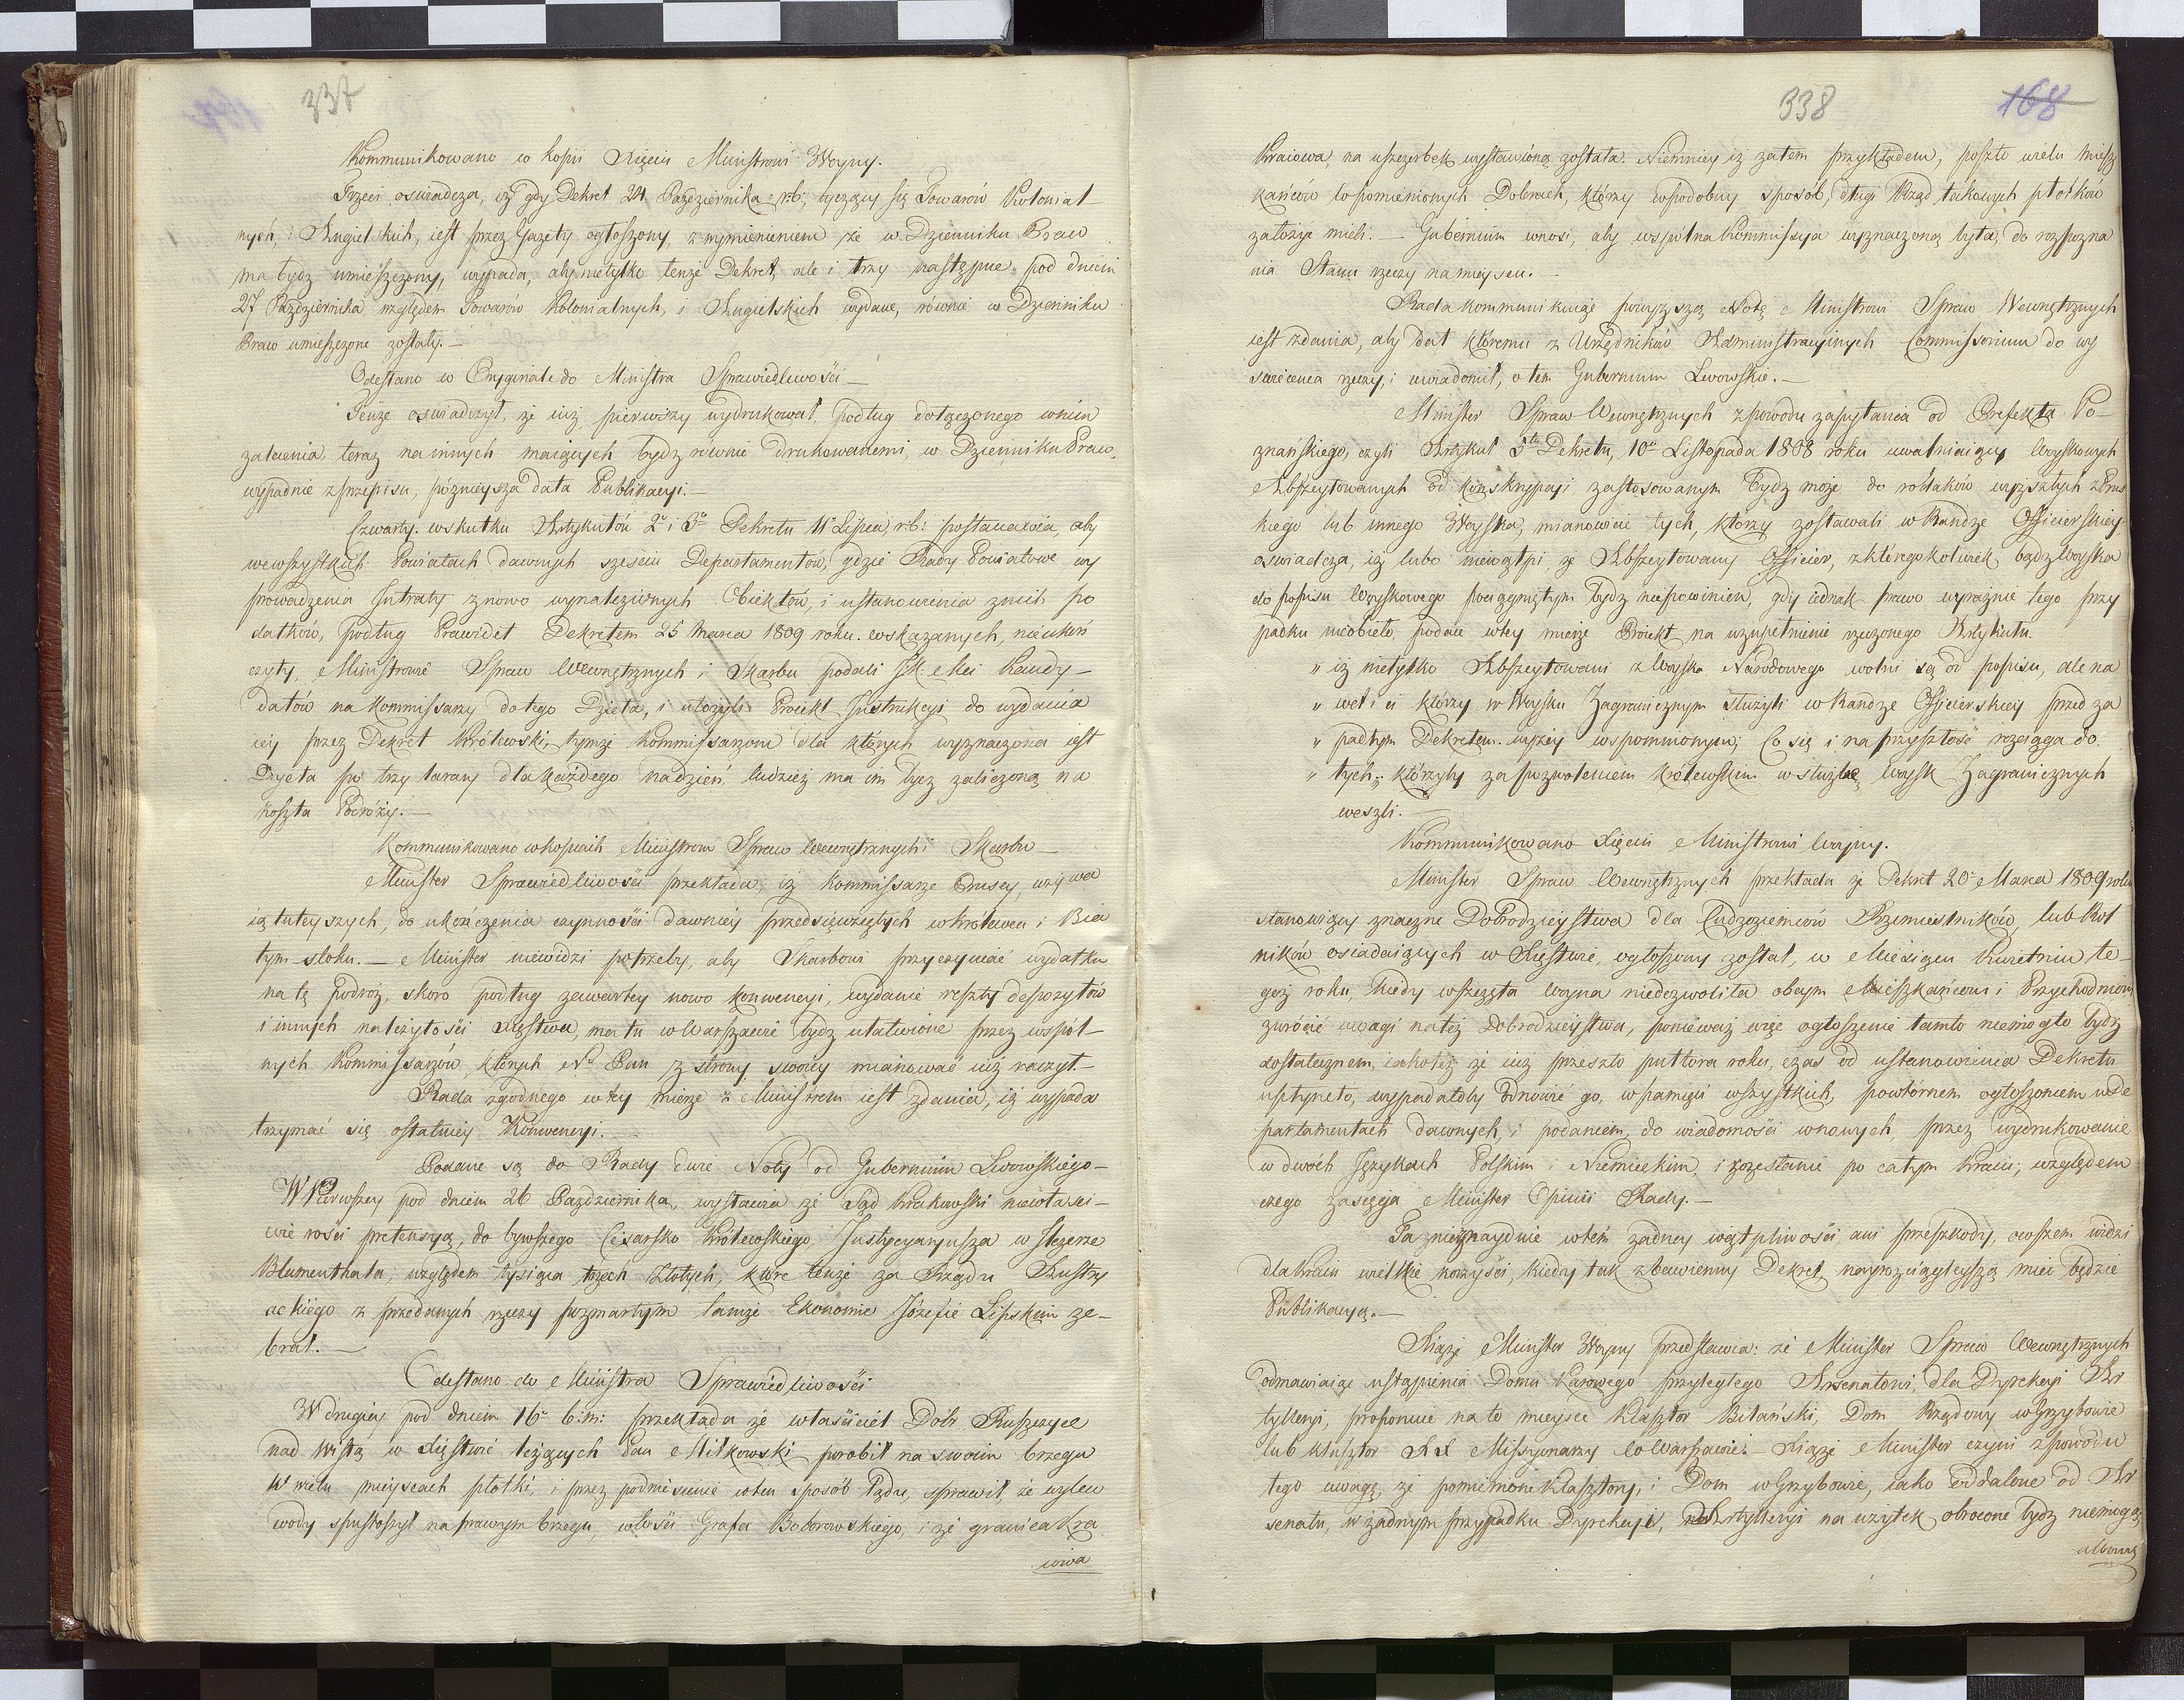 337
Kommunikowano w kopii Xięciu Ministrowi Woyny.
Trzeci oswiadcza, iż gdy Dekret 24 Pazdziernika r:b:, tyczący się Towarów Kolonial-
nych, i Angielskich, iest przez Gazety ogłoszony, z wymienieniem że w Dzienniku Praw
ma bydz umieszczony, wypada, aby nietylko tenże Dekret, ale i trzy następne pod dniem
27 Pazdziernika względem Towarów Kolonialnych, i Angielskich wydane, równie w Dzienniku
Praw umieszczone zostały.—
Odesłano w Oryginale do Ministra Sprawiedliwości—
Tenże oswiadczył, że iuż pierwszy wydrukował, podług dołączonego wnim
zalecenia, teraz na innych maiących bydz równie drukowanemi, w Dzienniku Praw,
wypadnie z przepisu, późnieysza data Publikacyi.—
Czwarty. wskutku Artykułów 2° i 3° Dekretu 11 Lipca, r:b: postanawia, aby
wewszystkich Powiatach dawnych szesciu Departamentów, gdzie Rady Powiatowe wy
prowadzenia Intraty z nowo wynalezionych Obiektów, i ustanowienia z nich po
datków, podług Prawideł Dekretem 25 Marca 1809 roku wskazanych, nieukoń
czyły, Ministrowie Spraw Wewnętrznych i Skarbu podali JK. Mci Kandy-
datów na Kommissarzy do tego Dzieła, i ułożyli Proiekt Instrukcyi do wydania
iey przez Dekret Królewski, tymże Kommissarzom dla których wyznaczona iest
Dyeta po trzy talary dla każdego na dzien, tudzież ma im bydz zaliczoną na
koszta Podróży.—
Kommunikowano wkopiach Ministrom Spraw Wewnętrznych i Skarbu—
Minister Sprawiedliwości przekłada, iż Kommissarze Pruscy, wzywa
ią tuteyszych, do ukończenia czynności dawniey przedsięwziętych w Królewcu i Bia
łym-stoku.— Minister niewidzi potrzeby, aby Skarbowi przyczyniać wydatku
na tę podróż, skoro podług zawartey nowo konwencyi, wydanie reszty depozytów
i innych należytości Xięstwa, ma tu w Warszawie bydz ułatwione przez wspól-
nych Kommissarzów, których N. Pan z strony swoiey mianować iuż raczył.—
Rada zgodnego w tey mierze z Ministrem iest zdania, iż wypada
trzymać się ostatniey Konwencyi.
Podane są do Rady dwie Noty od Gubernium Lwowskiego—
W Pierwszey pod dniem 26 Pazdziernika, wystawia że Sąd Krakowski niewłasci-
wie rości pretensyą, do bywszego Cesarsko Królewskiego Justycyaryusza w Jezerze
Blumenthala, względem tysiąca trzech Złotych, które tenże za Rządu Austry
ackiego z przedanych rzeczy pozmarłym tamże Ekonomie Józefie Lipskim ze-
brał.—
Odesłano do Ministra Sprawiedliwości
W drugiey pod dniem 16° b:m: przekłada że własciciel Dóbr Ruszczyce
nad Wisłą w Xięstwie leżących Pan Miłkowski porobił na swoim brzegu
w wielu mieyscach płotki, i przez podniesienie wten sposób Lądu, sprawił, że wylew
wody spustoszył na prawym brzegu, włości Grafa Bobrowskiego, i że granica Kra
iowa
338
168
Kraiowa, na uszczerbek wystawioną została. Niemniey iż zatem przykładem, poszło wielu miesz
kańców wpomienionych Dobrach, którzy wpodobny sposób, długi Rząd takowych płotków
założyć mieli.— Gubernium wnosi, aby wspólna Kommissya wyznaczoną była, do rozpozna
nia Stanu rzeczy na mieyscu.—
Rada kommunikuiąc powyższą Notę Ministrowi Spraw Wewnętrznych
iest zdania, aby dał któremu z Urzędników Administracyinych Commissorium do wy
swiecenia rzeczy, i uwiadomił, o tem Gubernium Lwowskie.—
Minister Spraw Wewnętrznych z powodu zapytania od Prefekta Po-
znańskiego, czyli Artykuł 5ty Dekretu, 10° Listopada 1808 roku uwalniaiący Woyskowych
Abszeytowanych od konskrypcyi zastosowanym bydz może do rodaków wyszłych z Prus
kiego lub innego Woyska, mianowicie tych, którzy zostawali w Randze Officierskiey,
oswiadcza, iż lubo niewątpi że Abszeytowany Officier, z któregokolwiek bądz Woyska
do popisu Woyskowego pociągniętym bydz niepowinien, gdy iednak prawo wyraznie tego przy
padku nieobieło, podaie wtey mierze Proiekt na uzupełnienie rzeczonego Artykułu.
„ iż nietylko Abszeytowani z Woyska Narodowego wolni są od popisu, ale na
„ wet i ci którzy w Woysku Zagranicznym służyli w Randze Officierskiey przed za
„ padłym Dekretem wyżey wspomnionym; Co się i na przyszłość rozciąga do
„ tych, którzyby za pozwoleniem królewskim w służbę Woysk Zagranicznych
weszli.—
Kommunikowano Xięciu Ministrowi Woyny.
Minister Spraw Wewnętrznych przekłada że Dekret 20° Marca 1809 roku
stanowiący znaczne Dobrodzieystwa dla Cudzoziemców Rzemieslników, lub Rol
ników osiadaiących w Xięstwie, ogłoszony został, w Miesiącu Kwietniu te-
goż roku, kiedy wszczęta Woyna niedozwoliła obcym Mieszkańcom i Przychodniom
zwrócić uwagi na też Dobrodzieystwa, ponieważ więc ogłoszenie tamto niemogło bydz
dostatecznem, iakoteż że iuż przeszło półtora roku, czas od ustanowienia Dekretu
upłynęło, wypadałoby odnowić go, wpamięci wszystkich, powtórnem ogłoszeniem w De
partamentach dawnych, i podaniem do wiadomości wnowych, przez wydrukowanie
w dwóch Językach Polskim i Niemieckim, i rozesłanie po całym Kraiu, względem
czego zasięga Minister Opinii Rady.—
Ta nieznayduie wtém żadney wątpliwości ani przeszkody, owszem widzi
dla Kraiu wielkie korzyści, kiedy tak zbawienny Dekret nayrozciągleyszą mieć będzie
Publikacyą.—
Xiąże Minister Woyny przedstawia: że Minister Spraw Wewnętrznych
odmawiaiąc ustąpienia Domu Karowego przyległego Arsenałowi, dla Dyrekcyi Ar
tylleryi, proponuie na to mieysce Klasztor Bilański, Dom Rządowy w Grzybowie
lub klasztor XX Missyonarzy w Warszawie.— Xiąże Minister czyni z powodu
tego uwagę, że pomienione Klasztory, i Dom w Grzybowie, iako oddalone od Ar
senału, w żadnym przypadku Dyrekcyi, Artylleryi na użytek obrocone bydz niemogą,
albowiem